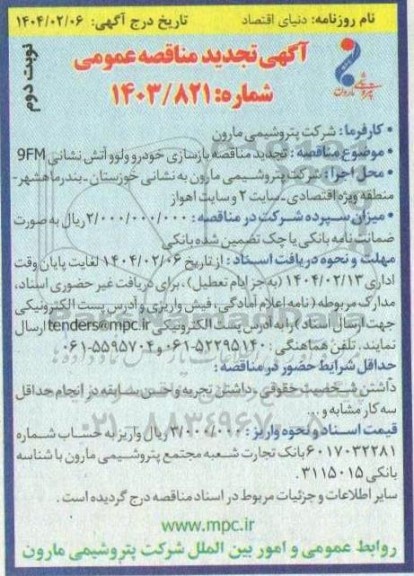 نام روزنامه: دنیای اقتصاد
تاریخ درج آگهی: ۱۴۰۴/۰۲/۰۶
نوبت دوم
آگهی تجدید مناقصه عمومی
شماره: ۱۴۰۳/۸۲۱
پتروشیمی مارون
• کارفرما: شرکت پتروشیمی مارون
• موضوع مناقصه: تجدید مناقصه بازسازی خودرو ولوو آتش نشانی 9FM
• محل اجرا: شرکت پتروشیمی مارون به نشانی خوزستان - بندرماهشهر-
منطقه ویژه اقتصادی-سایت ۲ و سایت اهواز
• میزان سپرده شرکت در مناقصه: ۲/۰۰۰/۰۰۰/۰۰۰ ریال به صورت
ضمانت نامه بانکی یا چک تضمین شده بانکی
مهلت و نحوه دریافت اسناد: از تاریخ ۱۴۰۴/۰۲/۰۶ لغایت پایان وقت
اداری ۱۴۰۴/۰۲/۱۳ (به جز ایام تعطیل). برای دریافت غیر حضوری اسناد،
مدارک مربوطه (نامه اعلام آمادگی، فیش واریزی و آدرس پست الکترونیکی
جهت ارسال اسناد) را به آدرس پست الکترونیکی tenders@mpc.ir ارسال
نمایند. تلفن هماهنگی: ۵۲۲۹۵۱۴۰-۰۶۱ و ۵۵۹۵۷۰۴-۰۶۱
حداقل شرایط حضور در مناقصه:
داشتن شخصیت حقوقی، داشتن تجربه و حسن سابقه در انجام حداقل
سه کار مشابه و...
قیمت اسناد و نحوه واریز: ۳/۰۰۰/۰۰۰ ریال واریز به حساب شماره
۶۰۱۷۰۳۲۲۸۱ بانک تجارت شعبه مجتمع پتروشیمی مارون با شناسه
بانکی ۳۱۱۵۰۱۵.
سایر اطلاعات و جزئیات مربوط در اسناد مناقصه درج گردیده است.
www.mpc.ir
روابط عمومی و امور بین الملل شرکت پتروشیمی مارون